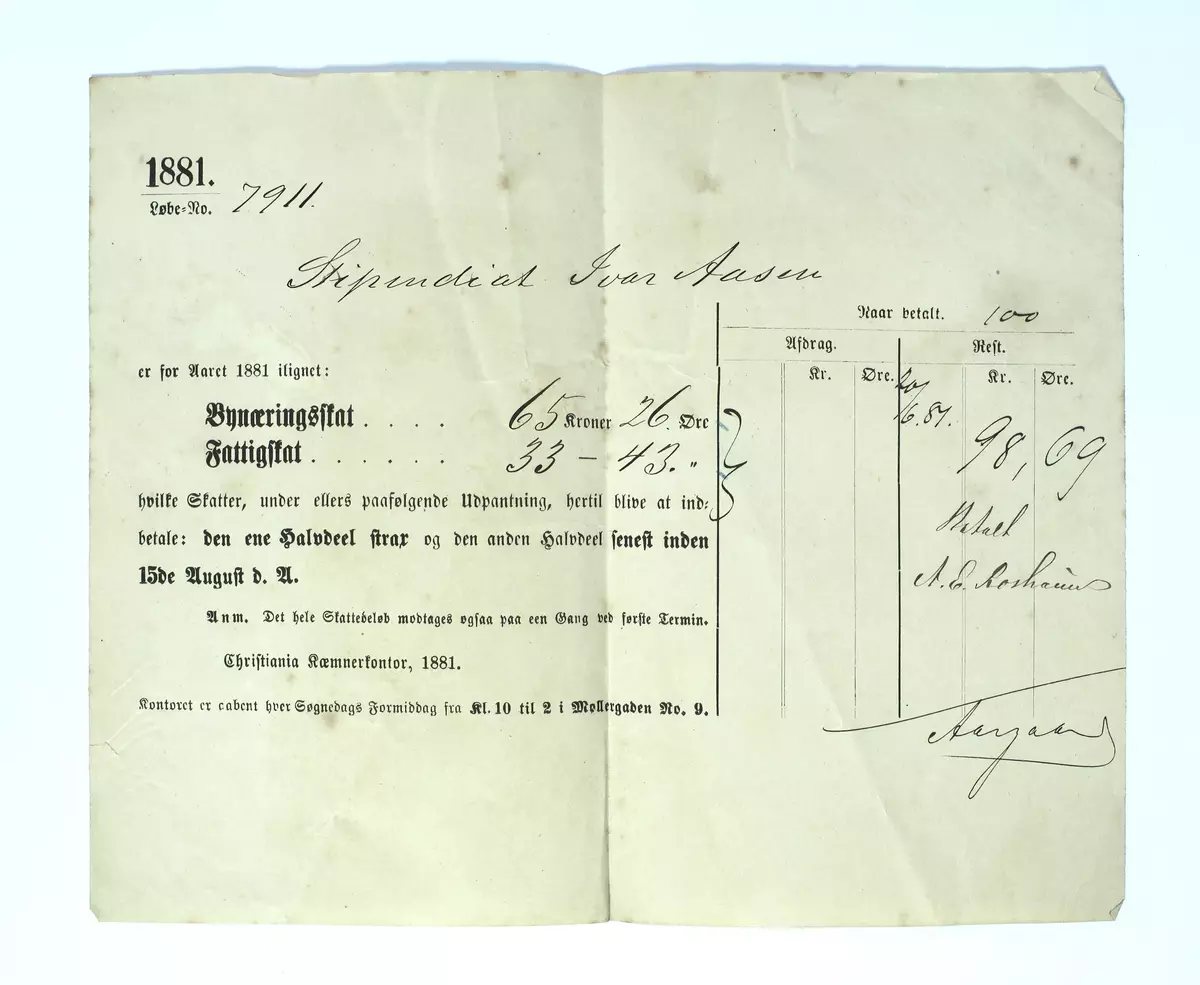 1881.
Løbe-No. 7911.
Stipendiat Ivar Aasen
er for Aaret 1881 ilignet:
Bynæringsskat . . . . 65 Kroner 26. Øre
Fattigskat . . . . . . 33 — 43. „
hvilke Skatter, under ellers paafølgende Udpantning, hertil blive at ind-
betale: den ene Halvdeel strax og den anden Halvdeel senest inden
15de August d. A.
Anm. Det hele Skattebeløb modtages ogsaa paa een Gang ved første Termin.
Christiania Kæmnerkontor, 1881.
Kontoret er aabent hver Søgnedags Formiddag fra Kl. 10 til 2 i Møllergaden No. 9.
Naar betalt. 100
Afdrag. Rest.
Kr. Øre. Kr. Øre.
20/6.81.
98,69
Betalt
A. E.